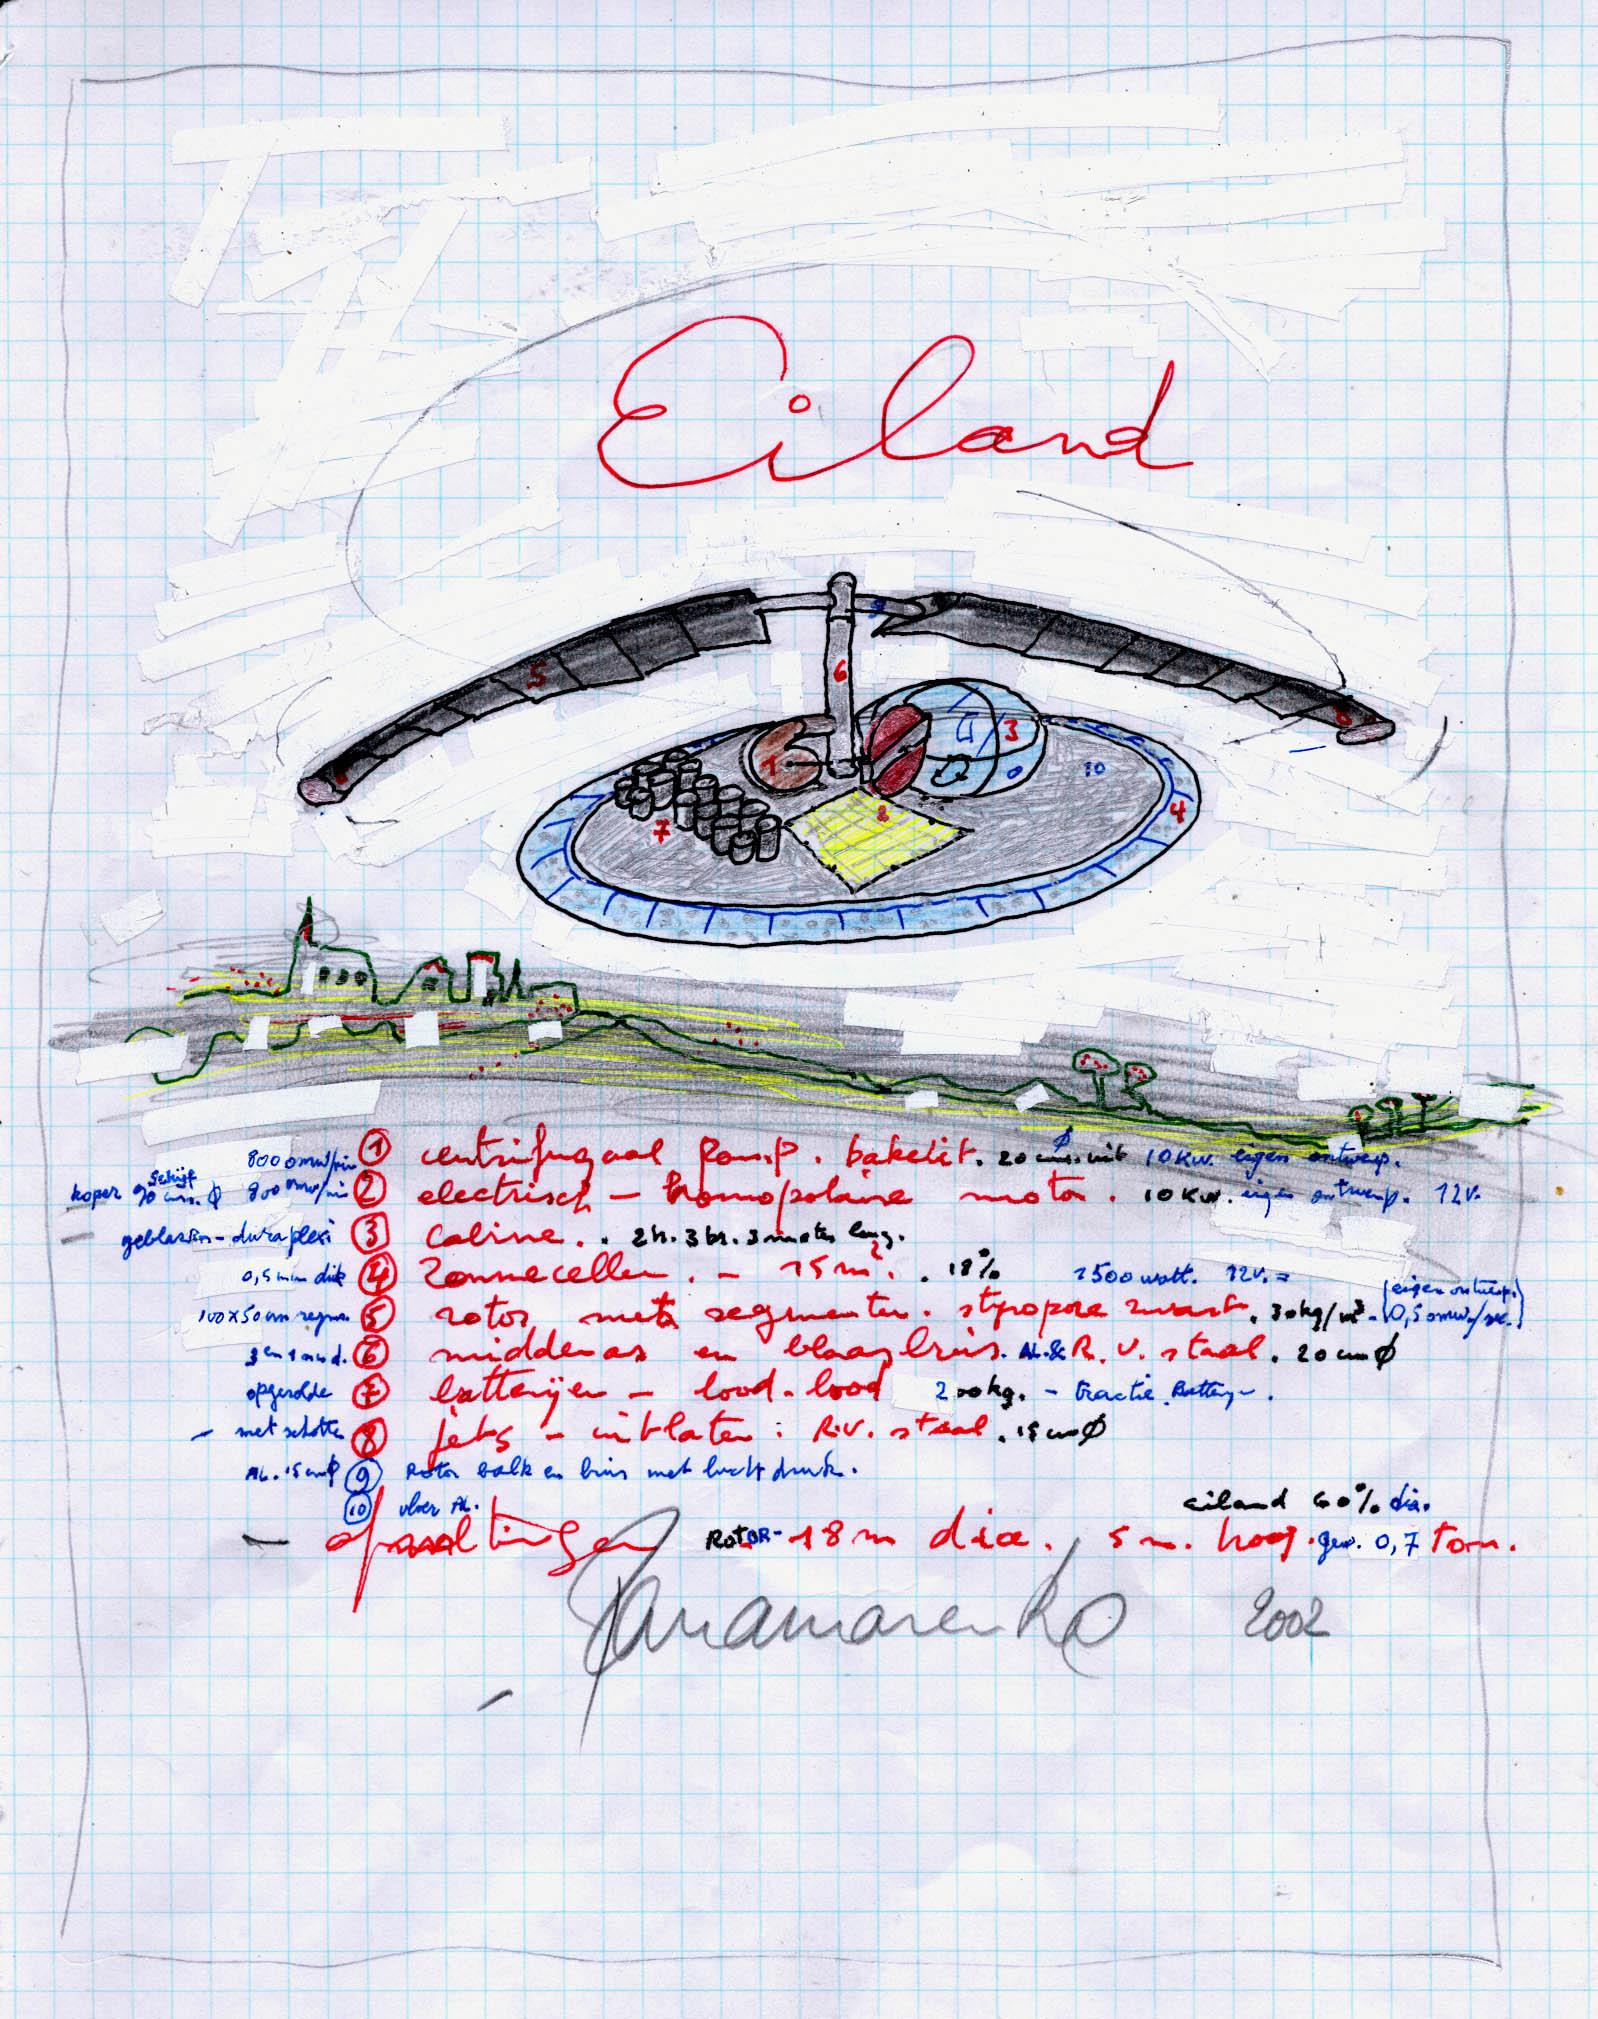 Eiland
9
5
6
3
1
10
8
4
7
8000mw/min ① centrifugaal pomp. bakelit. 20 cm. uit Ø 10KW. eigen ontwerp.
koper schijf 90 cm. Ø 8000mw/min ② electrisch - homopolaire motor. 10KW. eigen ontwerp. 12V.
geblazen - duraplexi ③ cabine. . 2 h. 3 br. 3 meter lang.
0,5 mm dik ④ Zonnecellen. - 15 m². . 18% 1500 watt. 12V. =
100x50 cm segm. ⑤ rotor met segmenten. styropore zwart. 30kg/m³ - (eigen ontwerp. 0,5 omw/sec.)
⑥ middenas en blaasbuis. AL. & R.V. staal. 20 cm Ø
opgerolde ⑦ batterijen - lood-lood 200kg. - tractie Batterij.
- met schotten ⑧ jets - uitlaten : R.V. staal. 15 cm Ø
AL. 15 cm Ø ⑨ Rotor balk en buis met luchtdruk.
⑩ vloer AL. eiland 60% dia.
- ROTOR - 18 m dia. 5 m. hoog. gew. 0,7 Ton.
Panamarenko 2002